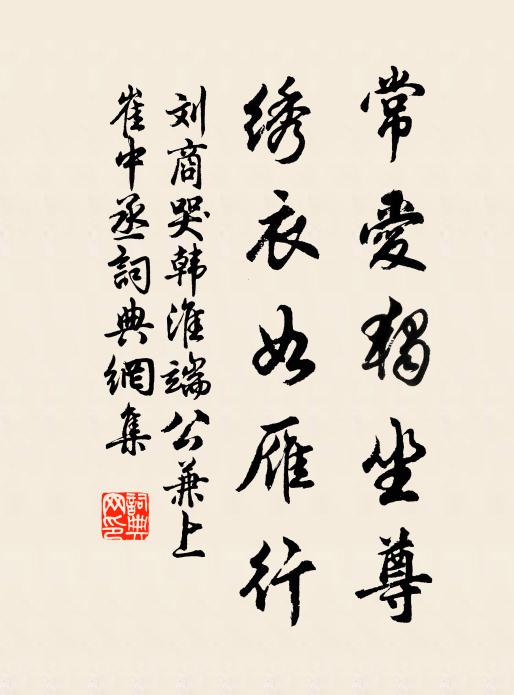 常愛獨坐尊
绣衣如雁行
刘商哭韩淮端公兼上
崔中丞詞典網集
詞典网印